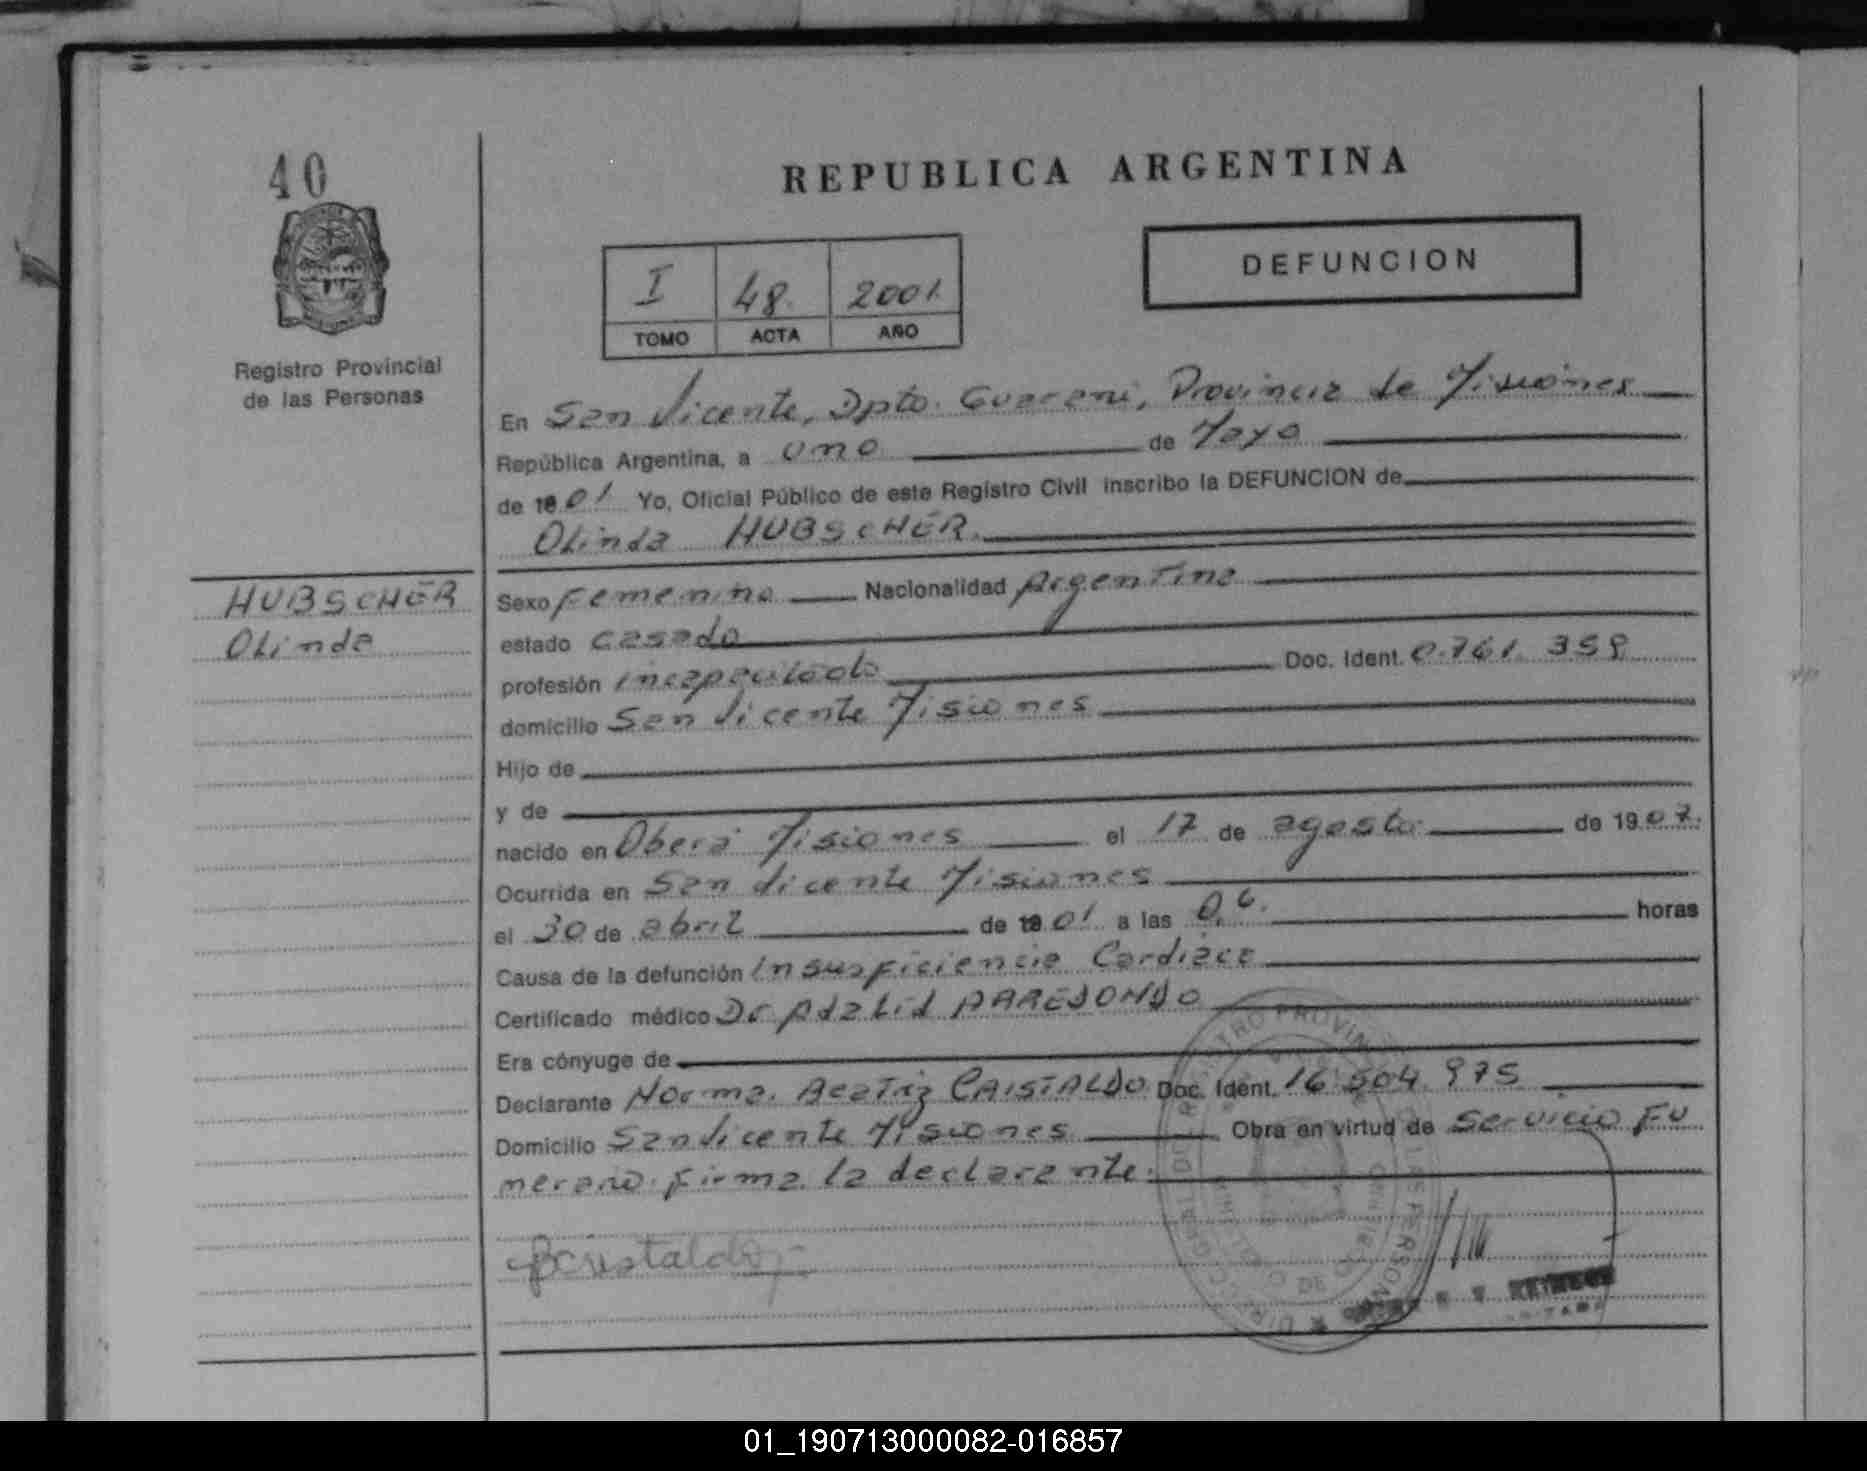 40
REPUBLICA ARGENTINA
I 48. 2001.
TOMO ACTA AÑO
DEFUNCION
Registro Provincial
de las Personas
En San Vicente, Dpto. Guarani, Provincia de Misiones
República Argentina, a uno de Mayo
de 01 Yo, Oficial Público de este Registro Civil inscribo la DEFUNCION de
Olinda HUBSCHER.
HUBSCHER
Olinda
Sexo Femenino Nacionalidad Argentina
estado casado
profesión incapacitado Doc. Ident. 0.761.359
domicilio San Vicente Misiones
Hijo de
y de
nacido en Oberá Misiones el 17 de agosto de 1907.
Ocurrida en San Vicente Misiones
el 30 de abril de 01 a las 0,6. horas
Causa de la defunción Insuficiencia Cardiaca
Certificado médico Dr Adalid ARREDONDO
Era cónyuge de
Declarante Norma Beatriz CRISTALDO Doc. Ident. 16.504.975
Domicilio San Vicente Misiones Obra en virtud de Servicio Fu
nerario. Firma la declarante.
Bcristaldo
01_190713000082-016857